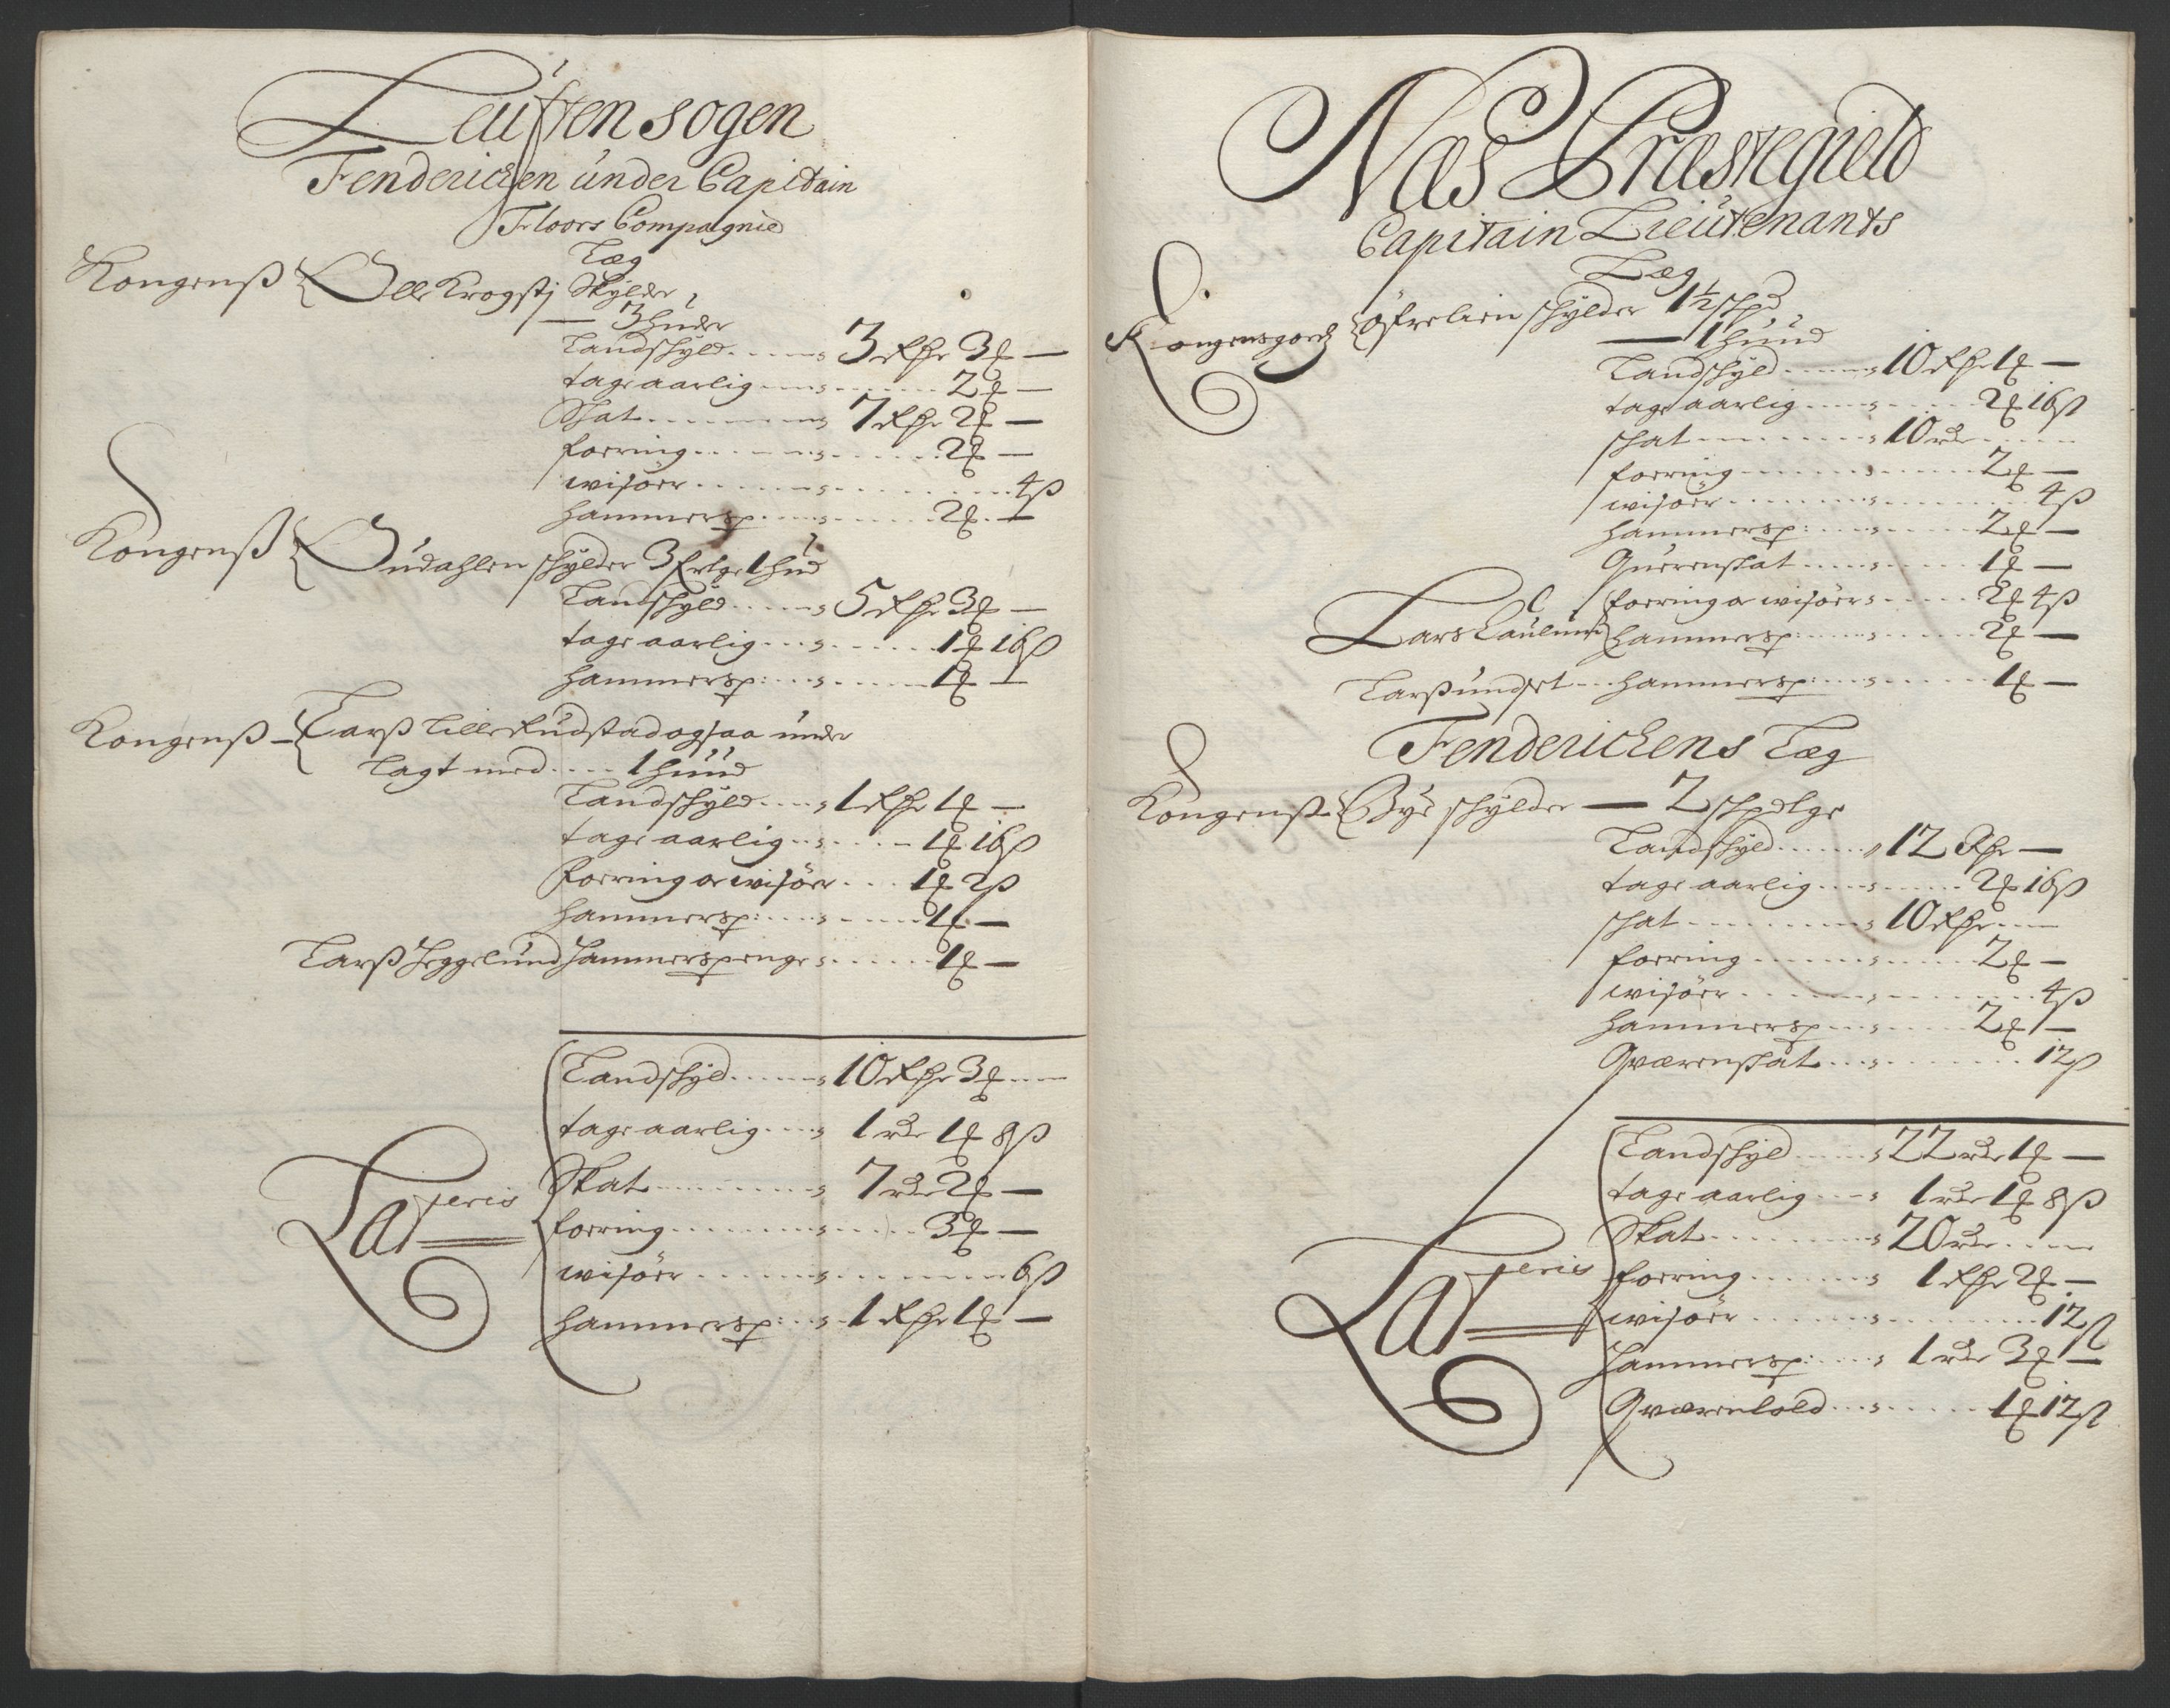 Leuften sogen
Fenderichen under Capitain
Floors Compagnie
Læg
Kongenß Olle Krogsti Skylder
— 3 huder
Landschyld 3 Rdr 3 ort —
tage aarlig 2 ort —
Schat 7 Rdr 2 ort —
foering 2 ort —
wisöer 4 ß
hammersp 2 ort —
Kongenß Oudahlen schylder 3 1 hud
Landschyld 5 Rdr 3 ort —
tage aarlig 1 ort 16 ß
hammersp: 1 ort —
Kongenß Larß Lille Rudstad ogsaa under
lagt med 1 huud
Landschyld 1 Rdr 1 ort —
tage aarlig 1 ort 16 ß
foering oc wisöer 1 ort 2 ß
hammersp: 1 ort —
Larß Heggelund hammerspenge 1 ort —
Landschyld 10 Rdr 3 ort
tage aarlig 1 rdr 1 ort 8 ß
Skat 7 rdr 2 ort —
Lateris foering 3 ort —
wisöer 6 ß
hammersp: 1 Rdr 1 ort —
Næs Præstegield
Capitain Lieutenants
Læg
Kongensgord Östrelien schylder 1½ schpd
— 1 huud
Landschyld 10 Rdr 1 ort —
tage aarlig 2 ort 16 ß
schat 10 rdr
foering 2 ort —
wisöer 4 ß
hammersp: 2 ort —
Querenskat 1 ort —
foering oc wisöer 2 ort 4 ß
Lars hammersp: 2 ort —
Larß undset hammersp: 1 ort —
Fenderichens Læg
Kongenß Bye schylder — 2 schpdlge
Landschyld 12 Rdr —
tage aarlig 2 ort 16 ß
schat 10 Rdr
foering 2 ort —
wisöer 4 ß
hammersp 2 ort —
Qværenskat 12 ß
Landschyld 22 rdr 1 ort —
tage aarlig 1 rdr 1 ort 8 ß
Skat 20 rdr
Lateris foering 1 Rdr 2 ort —
wisöer 12 ß
hammersp: 1 rdr 3 ort —
Qværentold 1 ort 12 ß